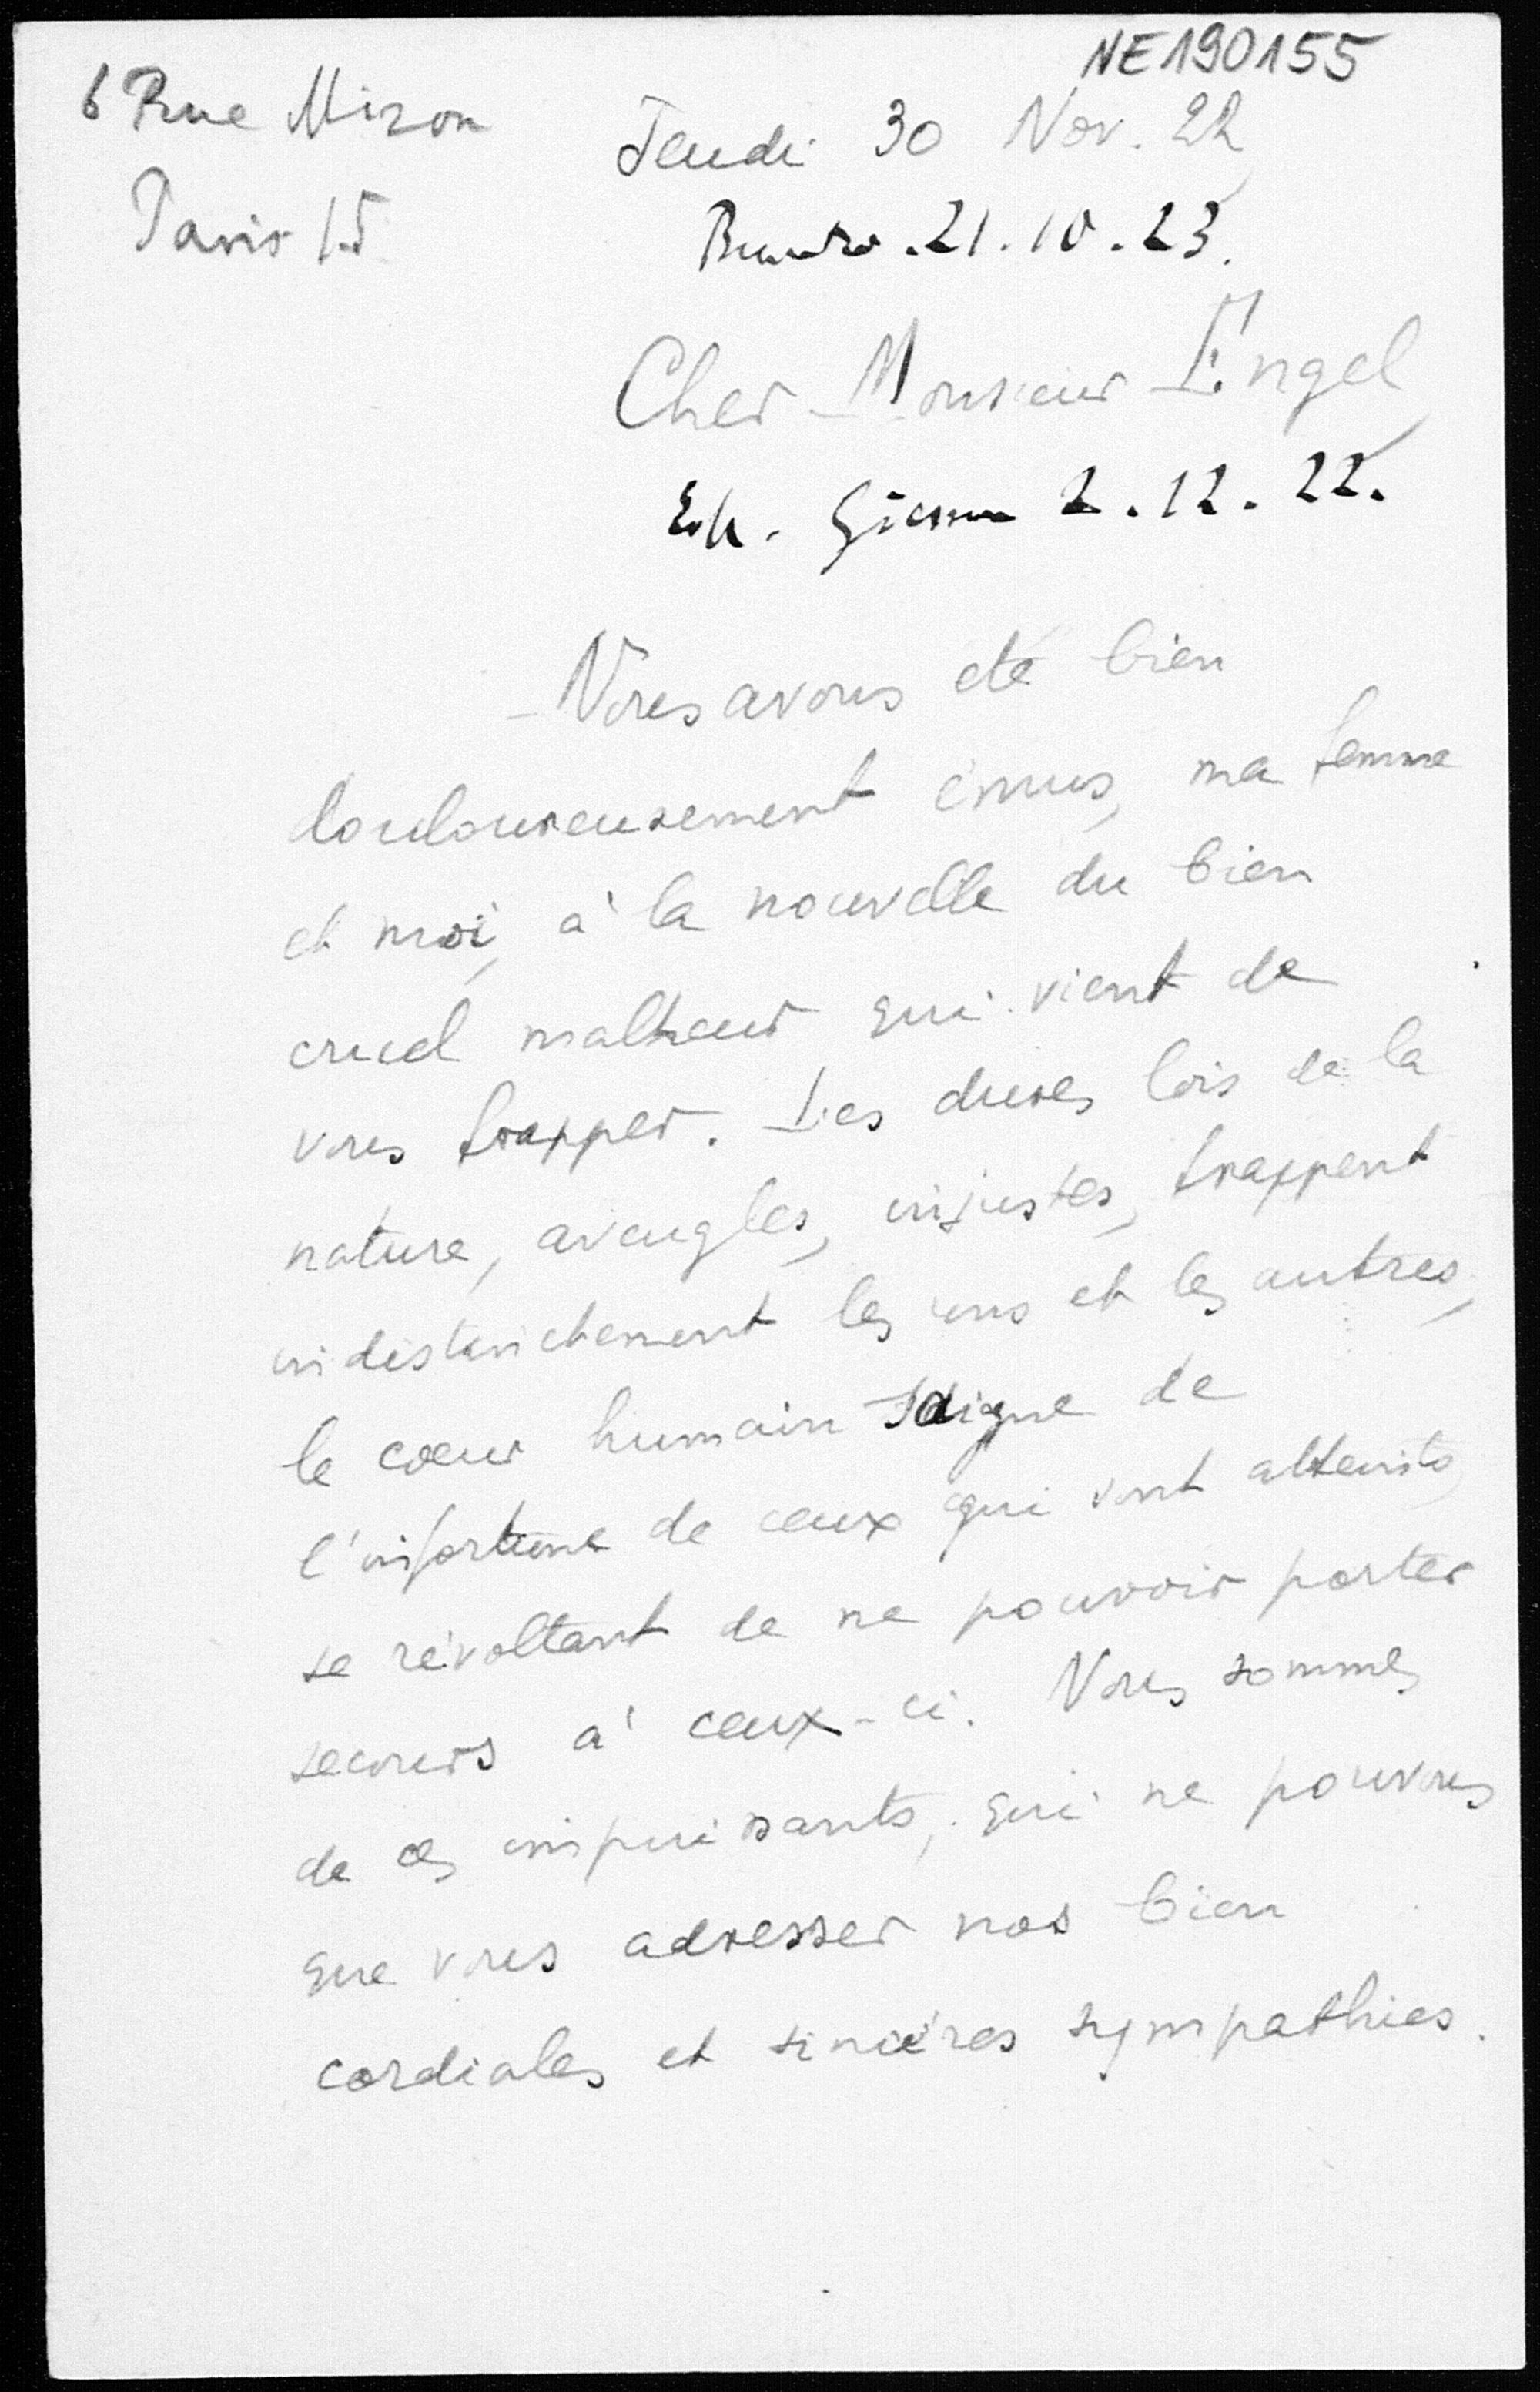 NE190155
6 Rue Mizon
Paris 15
Jeudi 30 Nov. 22
21.10.23.
Cher Monsieur Engel
Erh. Giessen 2.12.22.
Nous avons été bien
douloureusement émus, ma femme
et moi, à la nouvelle du bien
cruel malheur qui vient de
vous frapper. Les dures lois de la
nature, aveugles, injustes, frappent
indistinctement les uns et les autres,
le cœur humain saigne de
l'infortune de ceux qui sont atteints,
se révoltant de ne pouvoir porter
secours à ceux-ci. Nous sommes
de ces impuissants, qui ne pouvons
que vous adresser nos bien
cordiales et sincères sympathies.